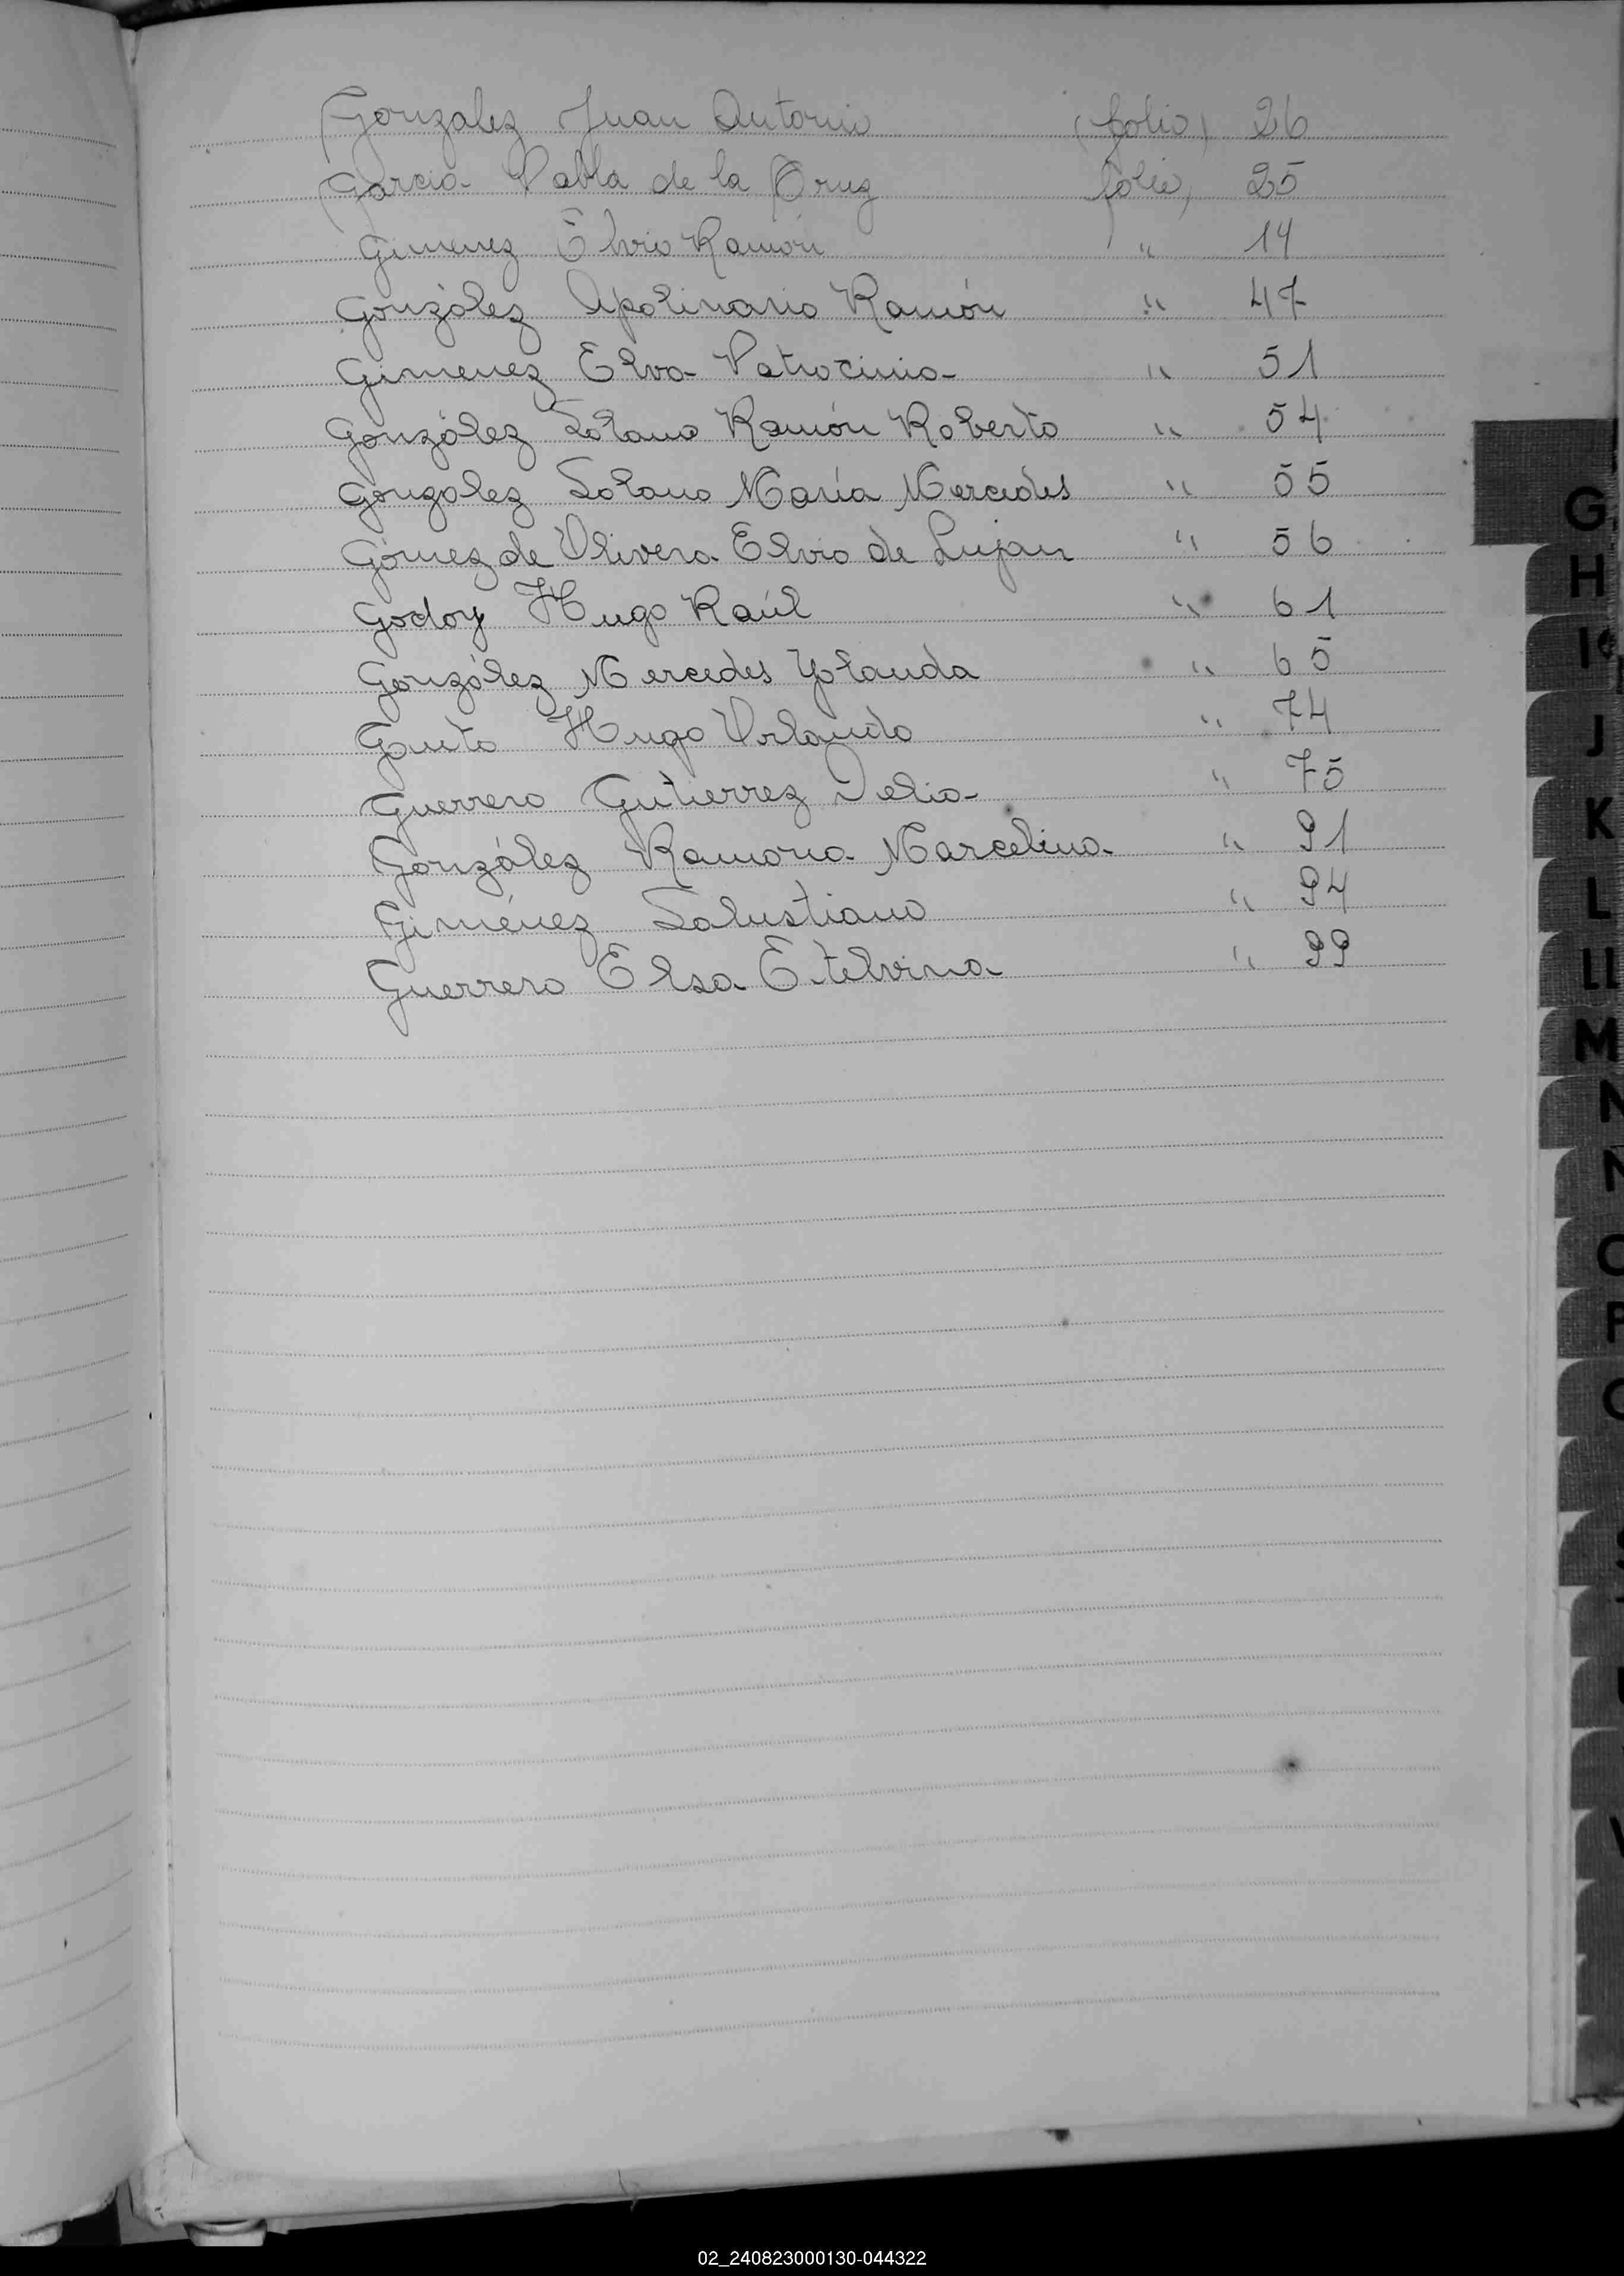 Gonzalez Juan Antonio (folio) 26
Garcia Pabla de la Cruz folio, 25
Gimenez Elvio Ramón " 14
González Apolinario Ramón " 47
Gimenez Elva Patrocinia " 51
González Solano Ramón Roberto " 54
Gonzalez Solano María Mercedes " 55
Gómez de Olivera Elvia de Lujan " 56
Godoy Hugo Raúl " 61
González Mercedes Yolanda " 65
Hugo Orlando " 74
Guerrero Gutierrez Delia " 75
González Ramona Marcelina " 91
Giménez Salustiano " 94
Guerrero Elsa Etelvina " 99
G
H
I
J
K
L
LL
M
N
Ñ
O
P
Q
02_240823000130-044322